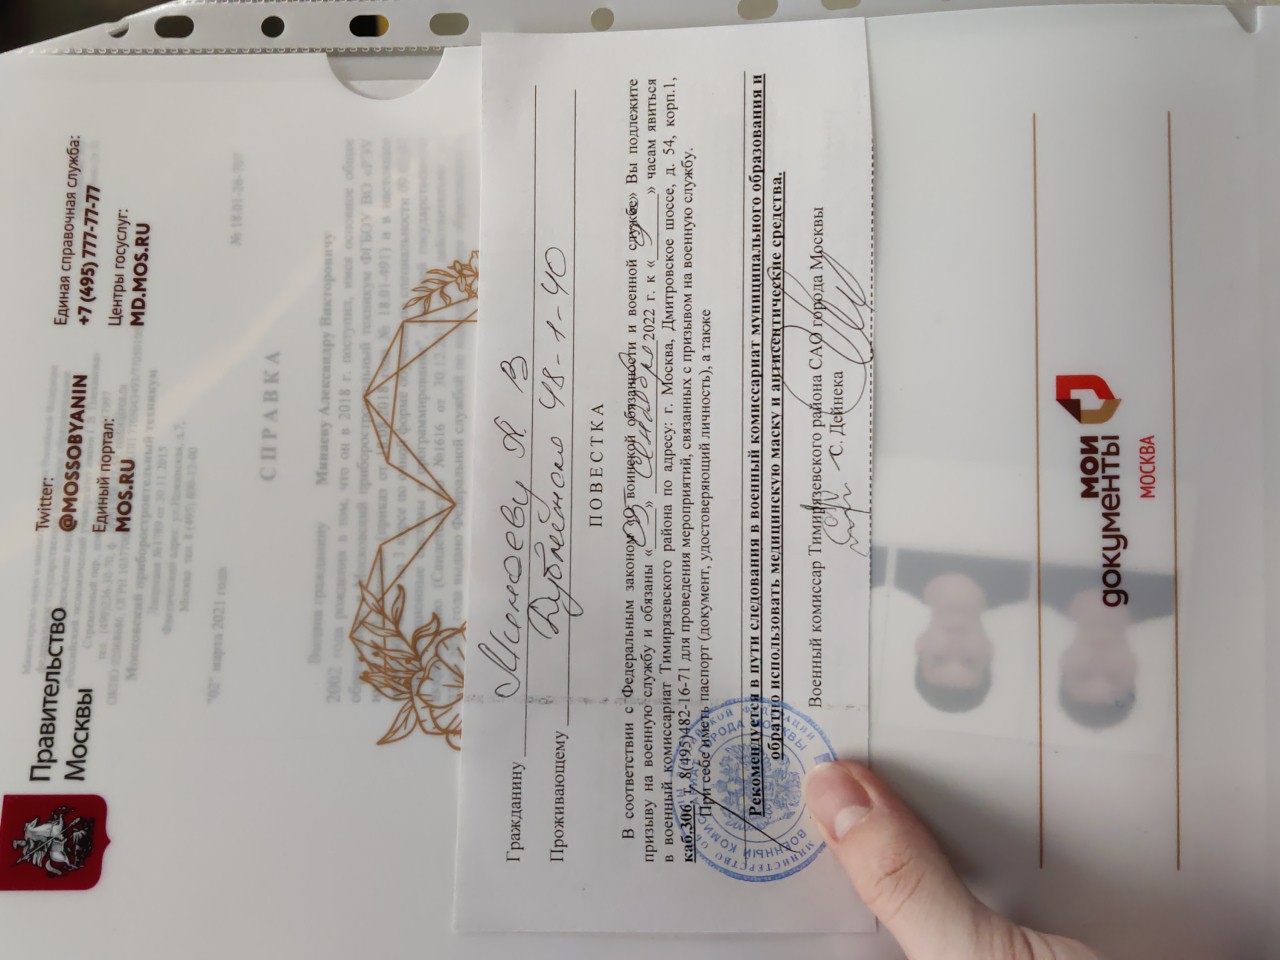 Правительство
Москвы
Twitter:
@MOSSOBYANIN
Единый портал:
MOS.RU
Единая справочная служба:
+7 (495) 777-77-77
Центры госуслуг:
MD.MOS.RU
Московский приборостроительный техникум
Лицензия №1789 от 30.11.2015
Фактический адрес: ул.Нежинская, д.7,
"02" марта 2021 года
№ 18.01-26-707
СПРАВКА
Выдана гражданину Минаеву Александру Викторовичу
2002 года рождения в том, что он в 2018 г. поступил, имея основное общее
Московский приборостроительный техникум ФГБОУ ВО «РЭУ
(приказ от 18.08.2018 года № 18.01-491) и в настоящее
3 курсе по очной форме специальности
системы и программирование",
(Свидетельство №1616 от 30.12
года выдано Федеральной службой по
Гражданину Минаеву А. В
Проживающему Дубнинская 48-1-40
ПОВЕСТКА
В соответствии с Федеральным законом «О воинской обязанности и военной службе» Вы подлежите
призыву на военную службу и обязаны «05» сентября 2022 г. к «9⁰⁰» часам явиться
в военный комиссариат Тимирязевского района по адресу: г. Москва, Дмитровское шоссе, д. 54, корп.1,
каб.306, т. 8(495)482-16-71 для проведения мероприятий, связанных с призывом на военную службу.
При себе иметь паспорт (документ, удостоверяющий личность), а также
Рекомендуется в пути следования в военный комиссариат муниципального образования и
обратно использовать медицинскую маску и антисептические средства.
Военный комиссар Тимирязевского района САО города Москвы
С. Дейнека
МИНИСТЕРСТВО ОБОРОНЫ РОССИЙСКОЙ ФЕДЕРАЦИИ
ВОЕННЫЙ КОМИССАРИАТ ГОРОДА МОСКВЫ
МОИ
документы
МОСКВА